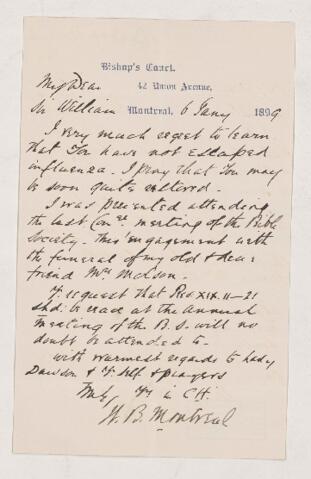 Bishop's Court.
42 Union Avenue,
My Dear
Sir William Montreal, 6 Jany 1899
I very much regret to learn
that You have not escaped
influenza. I pray that You may
be soon quite restored.
I was prevented attending
the last Comee. meeting of the Bible
Society - thro' engagement with
the funeral of my old & dear
friend Mrs Molson.
Yr request that Rev XIX. 11-21
shd: be read at the Annual
Meeting of the B. S. will no
doubt be attended to -
With warmest regards to Lady
Dawson & Yr self & prayers
Truly Yrs in CH:
W. B. Montreal